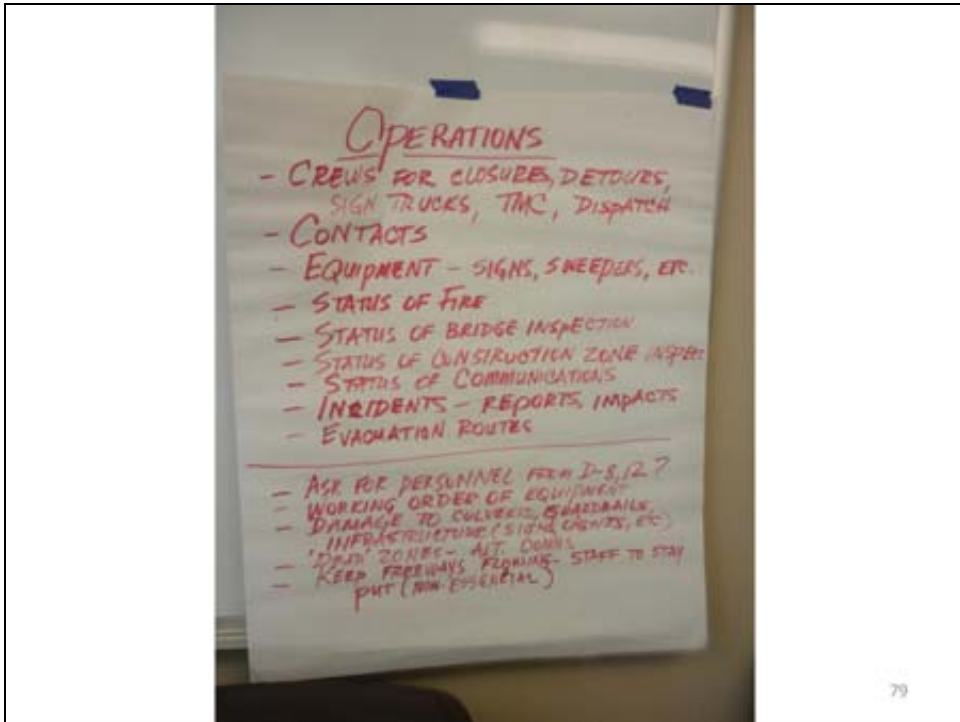 OPERATIONS
- CREWS FOR CLOSURES, DETOURS,
SIGN TRUCKS, TMC, DISPATCH
- CONTACTS
- EQUIPMENT - SIGNS, SWEEPERS, ETC.
- STATUS OF FIRE
- STATUS OF BRIDGE INSPECTION
- STATUS OF CONSTRUCTION ZONE INSPEC
- STATUS OF COMMUNICATIONS
- INCIDENTS - REPORTS, IMPACTS
- EVACUATION ROUTES
- ASK FOR PERSONNEL FROM D-8, 12?
- WORKING ORDER OF EQUIPMENT
- DAMAGE TO CULVERTS, GUARDRAILS,
INFRASTRUCTURE (SIGNS, LIGHTS, ETC)
- "DEAD" ZONES - ALT. COMMS
- KEEP FREEWAYS FLOWING - STAFF TO STAY
PUT (NON-ESSENTIAL)
79